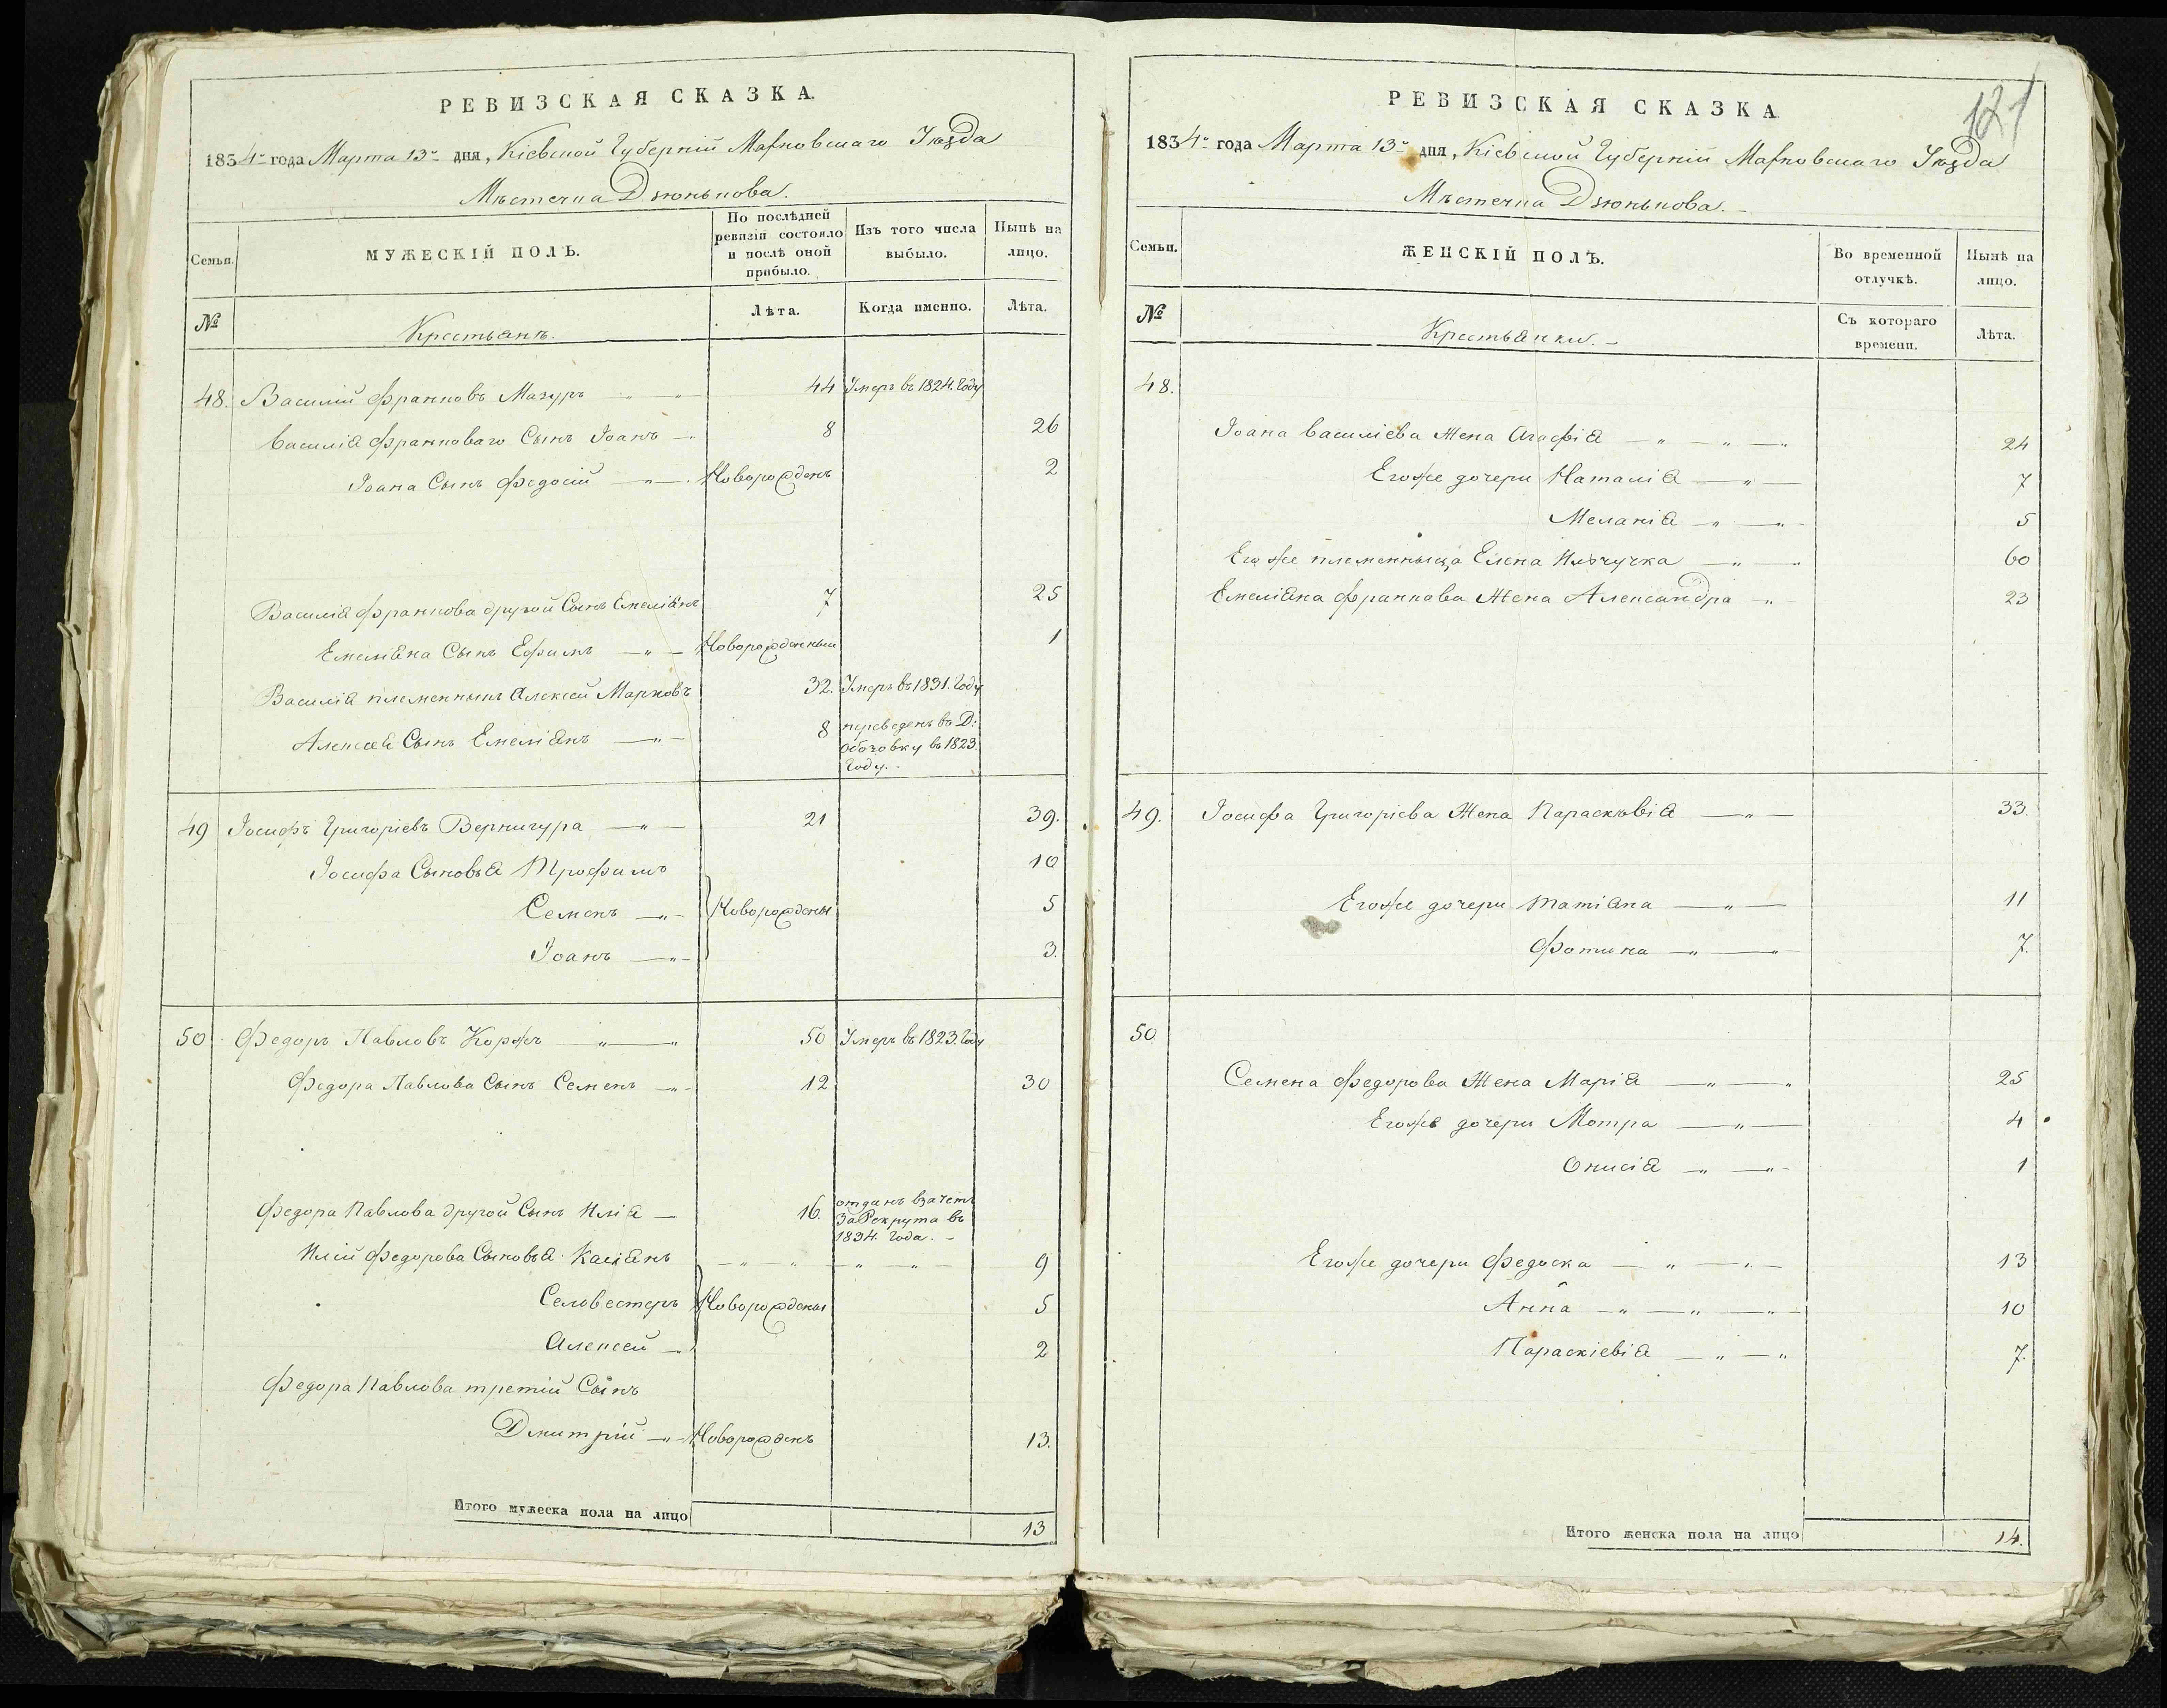 РЕВИЗСКАЯ СКАЗКА.
1834го года Марта 13го дня, Кіевской Губерніи Махновскаго Уѣзда
Мѣстечка Дзюнькова.
Семьи.
МУЖЕСКІЙ ПОЛЪ.
По послѣдней ревизіи состояло и послѣ оной прибыло.
Изъ того числа выбыло.
Нынѣ на лицо.
№
Крестьянѣ.
Лѣта.
Когда именно.
Лѣта.
48. Василій Франковъ Мазуръ 44 Умеръ въ 1824. Году
Василія Франковаго Сынъ Іоанъ 8 26
Іоана Сынъ Федосій Новорожденъ 2
Василія Франкова другой Сынъ Емеліянъ 7 25
Емеліяна Сынъ Ефимъ Новорожденный 1
Василія племенникъ Алексей Марковъ 32. Умеръ въ 1831. Году
Алексея Сынъ Емеліянъ 8 переведенъ въ Д:
въ 1823.
Году.
49 Іосифъ Григоріевъ Вернигура 21 39.
Іосифа Сыновья Трофимъ 10
Семенъ Новорождены 5
Іоанъ 3.
50 Федоръ Павловъ Коржъ 50 Умеръ въ 1823. Году
Федора Павлова Сынъ Семенъ 12 30
Федора Павлова другой Сынъ Илія 16. отданъ взачетъ
за Рекрута въ
1834. Года.
Иліи Федорова Сыновья Касіянъ 9
Селвестеръ Новорождены 5
Алексей 2
Федора Павлова третій Сынъ
Дмитрій Новорожденъ 13.
Итого мужеска пола на лицо 13
121
РЕВИЗСКАЯ СКАЗКА
1834го года Марта 13го дня, Кіевской Губерніи Махновскаго Уѣзда
Мѣстечка Дзюнькова.
Семьи.
ЖЕНСКІЙ ПОЛЪ.
Во временной отлучкѣ.
Нынѣ на лицо.
№
Крестьянки.
Съ котораго времени.
Лѣта.
48.
Іоана Василіева Жена Агафія 24
Егоже дочери Наталія 7
Меланія 5
Егоже племенныца Елена 60
Емеліяна Франкова Жена Александра 23
49. Іосифа Григоріева Жена Параскѣвія 33.
Егоже дочери Татіяна 11
Фотина 7.
50
Семена Федорова Жена Марія 25
Егоже дочери Мотра 4
Онисія 1
Егоже дочери Федоска 13
Анна 10
Параскіевія 7.
Итого женска пола на лицо 14.